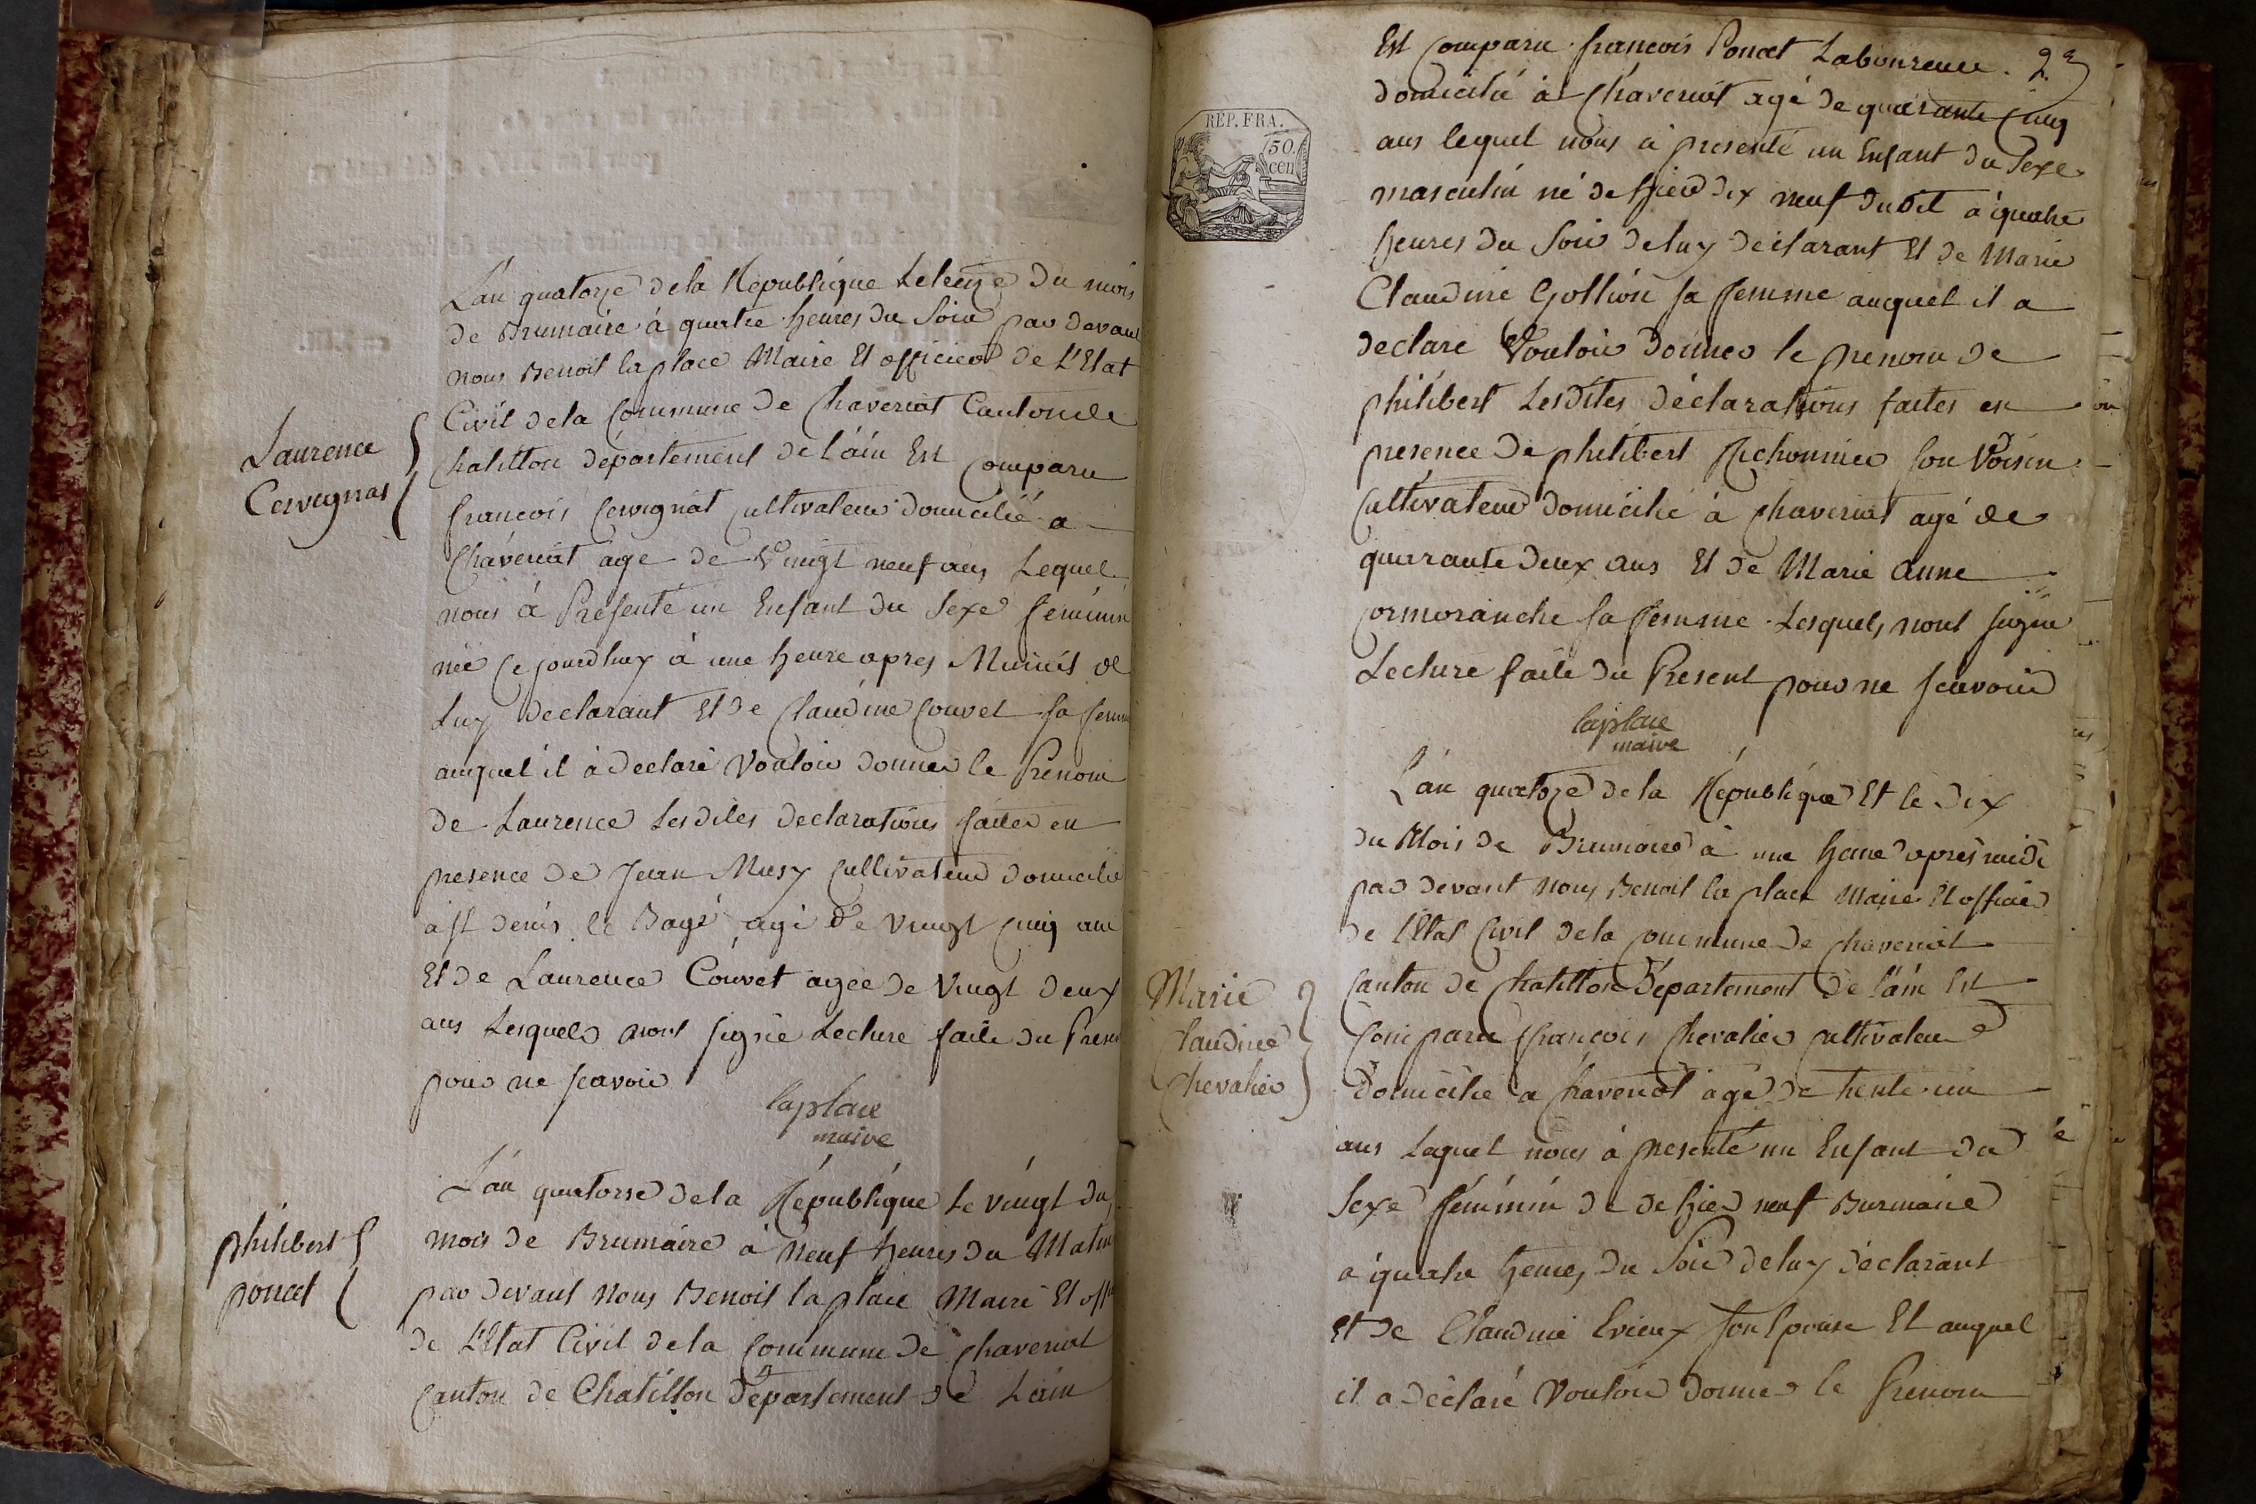 L'an quatorze de la Republique Le treize du mois
de Brumaire à quatre heures du Soir par devant
nous Benoit la place Maire Et officier de L'Etat
Civil de la Commune de Chaveriat Canton de
Chatillon département de l'ain Est Comparu
Laurence
Cervignat
francois Cervignat Cultivateur domicilié a
Chaveriat agé de Vingt neuf ans Lequel
nous à Presenté un Enfant du Sexe feminin
née Ce jourdhuy à une heure apres Minuit de
Luy declarant Et de Claudine Couvet sa femme
auquel il à declaré Vouloir donner le Prenom
de Laurence Lesdites declarations faites en
presence de Jean Musy Cultivateur domicilié
à st denis le Bagé agé de Vingt Cinq ans
Et de Laurence Couvet agée de Vingt deux
ans Lesquels nont signé Lecture faite du Present
pour ne scavoir
laplace
maire
L'an quatorse de la République Le vingt du
mois de Brumaire à Neuf heures du Matin
philibert
poncet
par devant Nous Benoit la place Maire Et off
de L'Etat Civil de la Commune de Chaveriat
Canton de Chatillon Département de Lain
REP. FRA.
50.
cen
2e
Est Comparu francois Poncet Laboureur
domicilié à Chaveriat agé de quarante Cinq
ans lequel nous à presenté un Enfant du Sexe
masculin né de hier dix neuf dudit à quatre
heures du Soir de luy déclarant Et de Marie
Claudine Gollion sa femme auquel il a
declaré Vouloir donner le prenom de
philibert Lesdites déclarations faites en
presence de philibert Michonnier son Voisin
Cultivateur domicilié à Chaveriat agé de
quarante deux ans Et de Marie Anne
Cormoranche sa femme Lesquels nont signé
Lecture faite du Present pour ne scavoir
laplace
maire
L'an quatoze de la République Et le dix
du Mois de Brumaire à une heure après midi
par devant Nous Benoit la place Maire Et officier
de l'Etat Civil de la Commune de Chaveriat
Canton de Chatillon Département de l'ain Est
Marie
Claudine
Chevalier
Comparu francois Chevalier Cultivateur
Domicilié a Chaveriat agé de trente un
ans Laquel nous à presenté un Enfant du
Sexe féminin de de hier neuf Burmaire
à quatre heures du Soir de luy déclarant
et de Claudine Evieux son Epouse Et auquel
il a déclaré Vouloir donner le Prenom